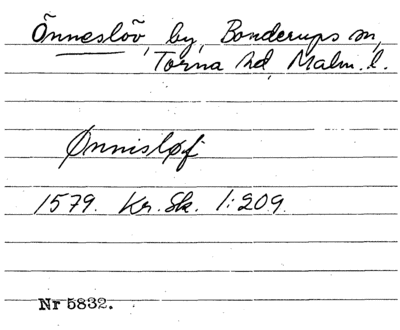 Önneslöv, by, Bonderups sn,
Torna hd, Malm. l.
Ønnisløf
1579. Kr. Sk. 1:209.
Nr 5832.